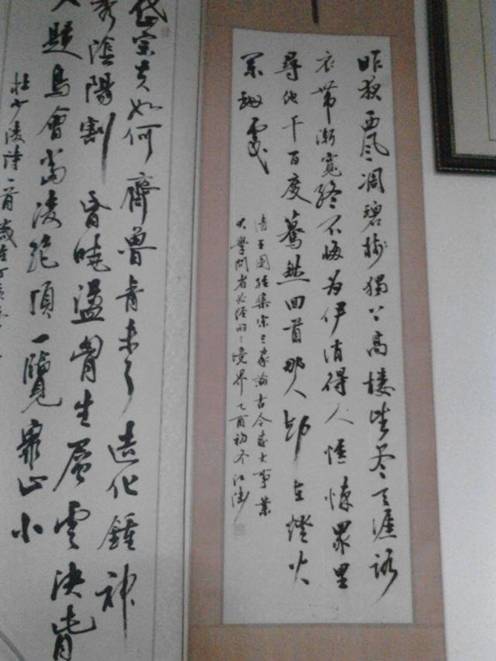 昨夜西風凋碧樹獨上高樓望盡天涯路
衣帶漸寬終不悔為伊消得人憔悴眾里
尋他千百度驀然回首那人卻在燈火
闌珊處
清王國維集宋三家論古今成大事業
大學問者必經的三境界乙酉初冬江濤
岱宗夫如何齊魯青未了造化鍾神
秀陰陽割昏曉盪胸生層雲決眥
入歸鳥會當凌絕頂一覽眾山小
杜少陵詩一首歲在